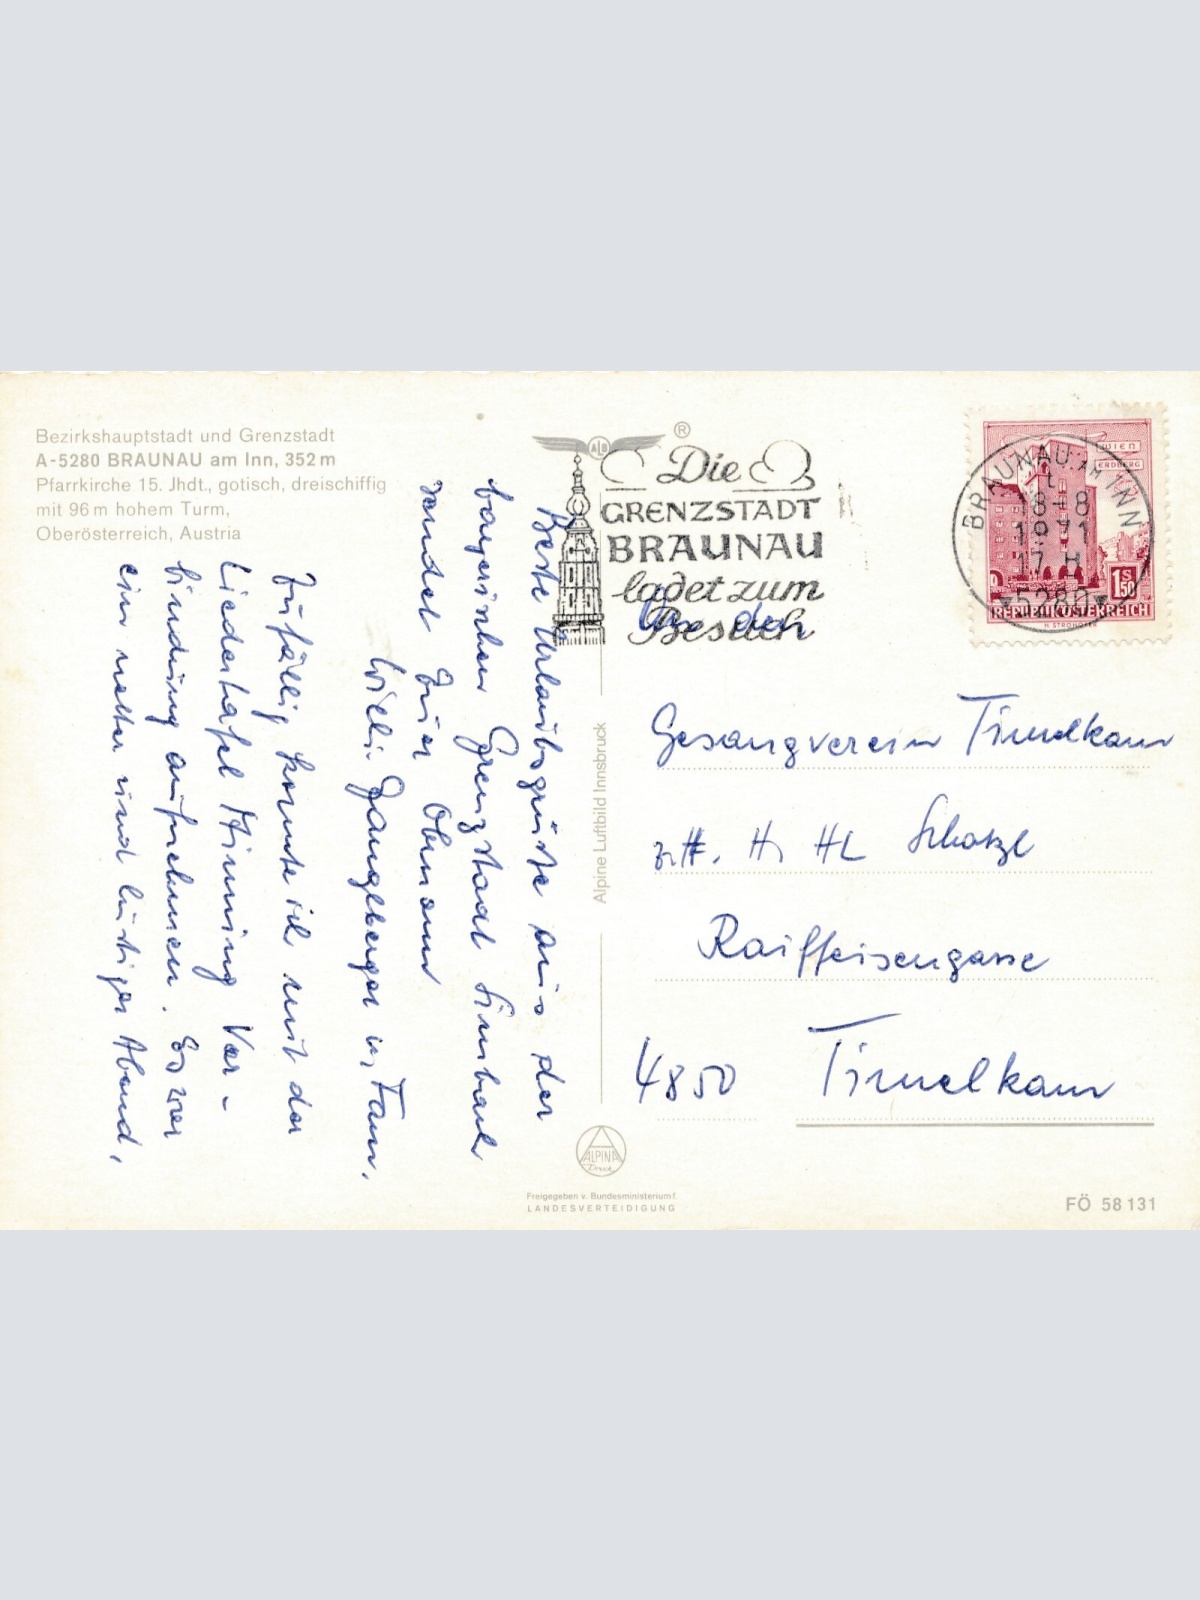 Bezirkshauptstadt und Grenzstadt
A-5280 BRAUNAU am Inn, 352 m
Pfarrkirche 15. Jhdt., gotisch, dreischiffig
mit 96 m hohem Turm,
Oberösterreich, Austria
ALB ®
Die
GRENZSTADT
BRAUNAU
ladet zum
Besuch
BRAUNAU AM INN
18-8
1971
17 H
5280
WIEN
ERDBERG
1S50
REPUBLIK ÖSTERREICH
H. STROHOFER
Beste Urlaubsgrüße aus der
bayrischen Grenzstadt Simbach
sendet Euer Obmann
Willi Ganglberger u. Fam.
Zufällig konnte ich mit der
Liedertafel Mining Ver-
bindung aufnehmen. Es war
ein netter und lustiger Abend,
An den
Gesangverein Timelkam
z. H. H. HL Schatzl
Raiffeisengasse
4850 Timelkam
Alpine Luftbild Innsbruck
ALPINA
Druck
Freigegeben v. Bundesministerium f.
LANDESVERTEIDIGUNG
FÖ 58 131